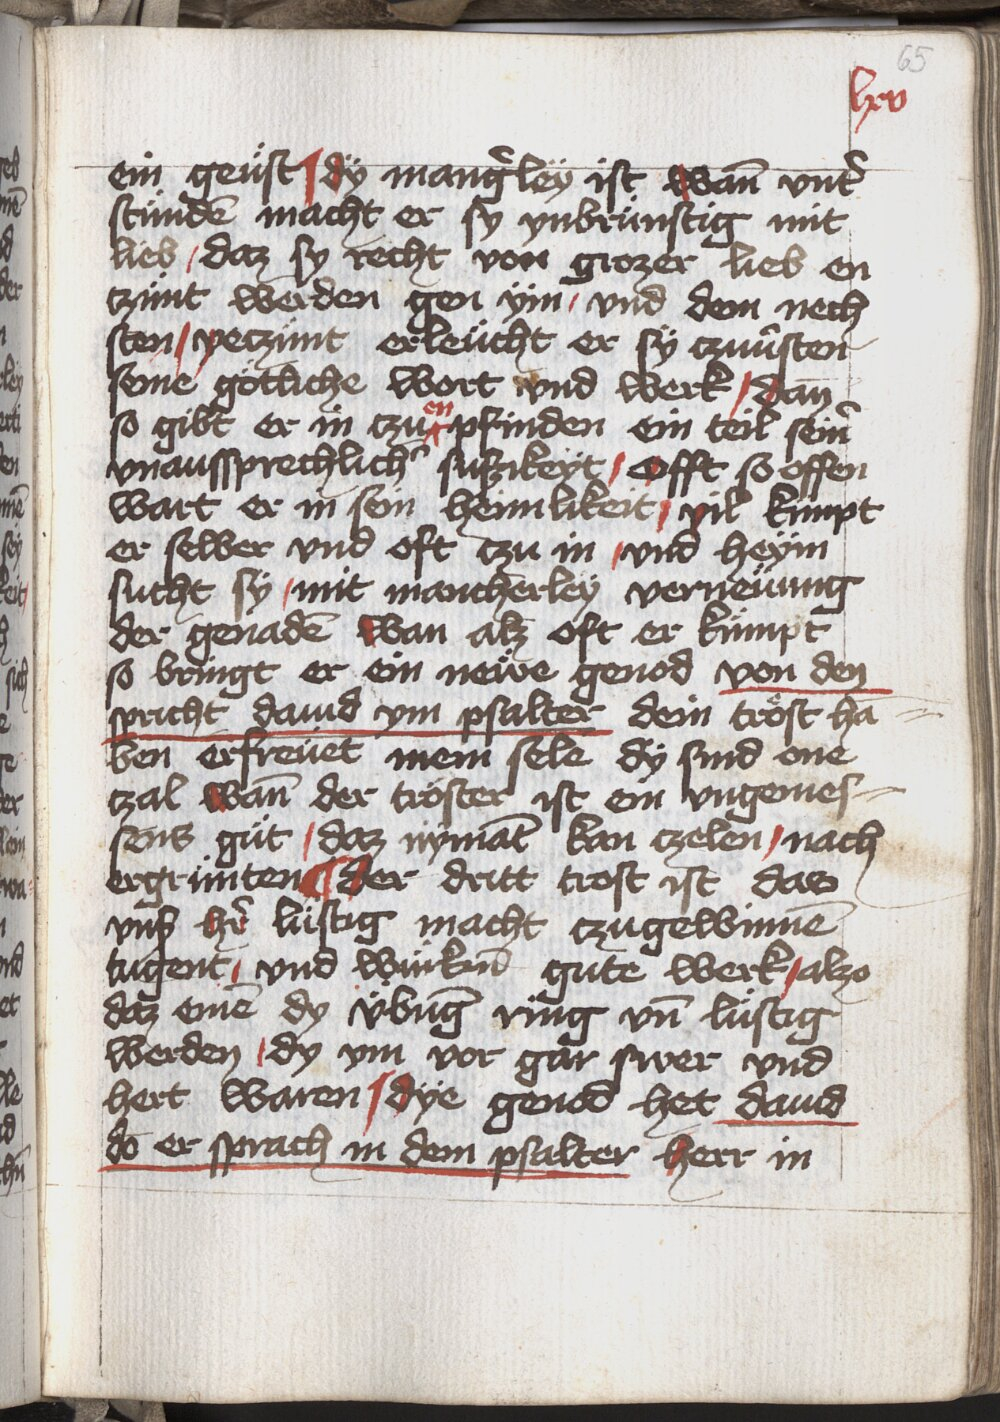 65
lxv
ein geüst / dÿ mang̃leÿ ist wan̄ vnt̃
stünden̄ macht er sy ynbrünstig mit
lieb / daz sy recht von grozer lieb en
tzünt werden gen ÿm / vnd dem nech
sten / yeczünt erleücht er sÿ czuürsten
seine götliche wort vnd werk / dan̄
so gibt er in czu en pfinden ein teil sein̄
vnaussprechlich̃ sußikeyt / Offt so offen
wart er in sein heimlikeit / vil kumpt
er selber vnd oft czu in / vnd heÿm
sucht sÿ / mit mancherleÿ verneüung
der genaden̄ wan alz oft er kümpt
so bringt er ein newe genod von den
spricht dauid ym psalter dein tröst ha
ben erfreüet mein sele dÿ sind one
czal wan̄ der tröster ist ein vngemes
sens güt / daz nÿmant̄ kan czelen / nach
ergrünten ¶ der dritt trost ist das
vnß hie lüstig macht czugewinnen̄
tugent / vnd würken gute werk / alzo
daz einen̄ dy vbunḡ ring vn̄ lüstig
werden / dy ym vor gar swer vnd
hert waren / dÿe genod het dauid
do er sprach in dem psalter herr in